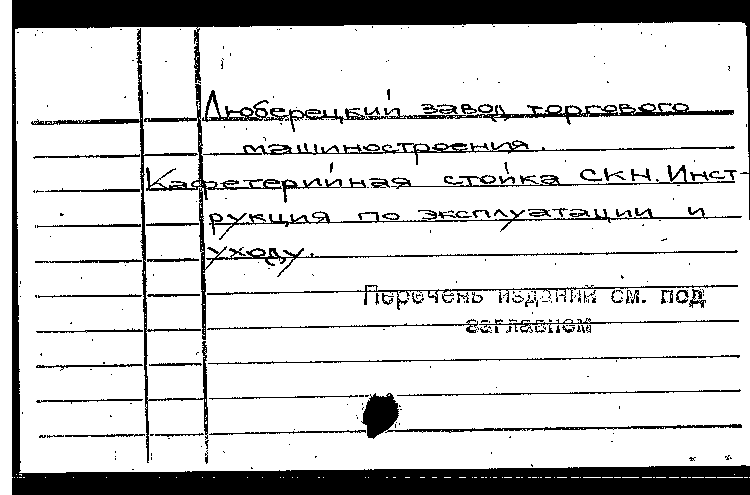 Люберецкий завод торгового
машиностроения.
Кафетерийная стойка СКН. Инст-
рукция по эксплуатации и
уходу.
Перечень изданий см. под
заглавием